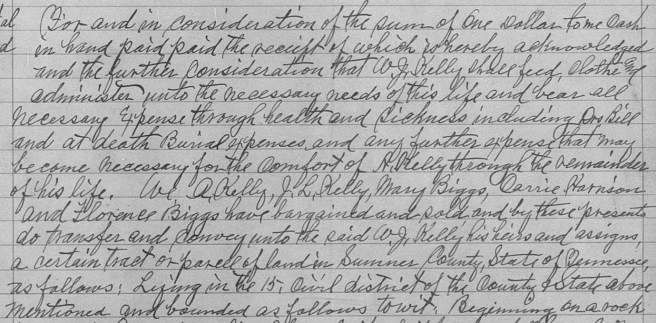 al For and in consideration of the sum of One Dollar to me Cash
d in hand paid, paid the receipt of which is hereby acknowledged
and the further consideration that W. J. Kelly shall feed, clothe and
administer unto the necessary needs of this life and bear all
necessary Expense through health and Sickness including Drs Bill
and at death Burial expenses, and any further expense that may
become necessary for the comfort of A. Kelly through the remainder
of his life. We A. Kelly, J. L. Kelly, Mary Biggs, Carrie Harrison
and Florence Biggs have bargained and sold and by these presents
do transfer and convey unto the said W. J. Kelly, his heirs and assigns,
a certain tract or parcel of land in Sumner County, State of Tennessee,
as follows: Lying in the 15, Civil district of the County & State above
mentioned and bounded as follows to wit: Beginning on a rock